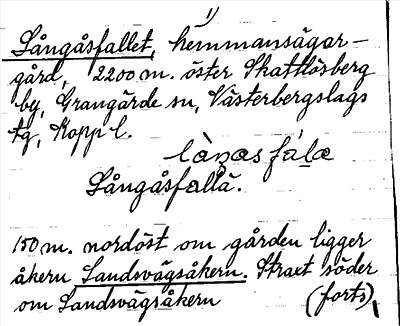 1)
Långåsfallet, hemmansägar-
gård, 2200 m. öster Skattlösberg
by, Grangärde sn, Västerbergslags
tg, Kopp. l.
làŋasfála
Långåsfallä.
150 m. nordöst om gården ligger
åkern Landsvägsåkern. Strax söder
om Landsvägsåkern (forts).